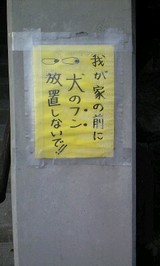 我が家の前に
犬のフン
放置しないで!!